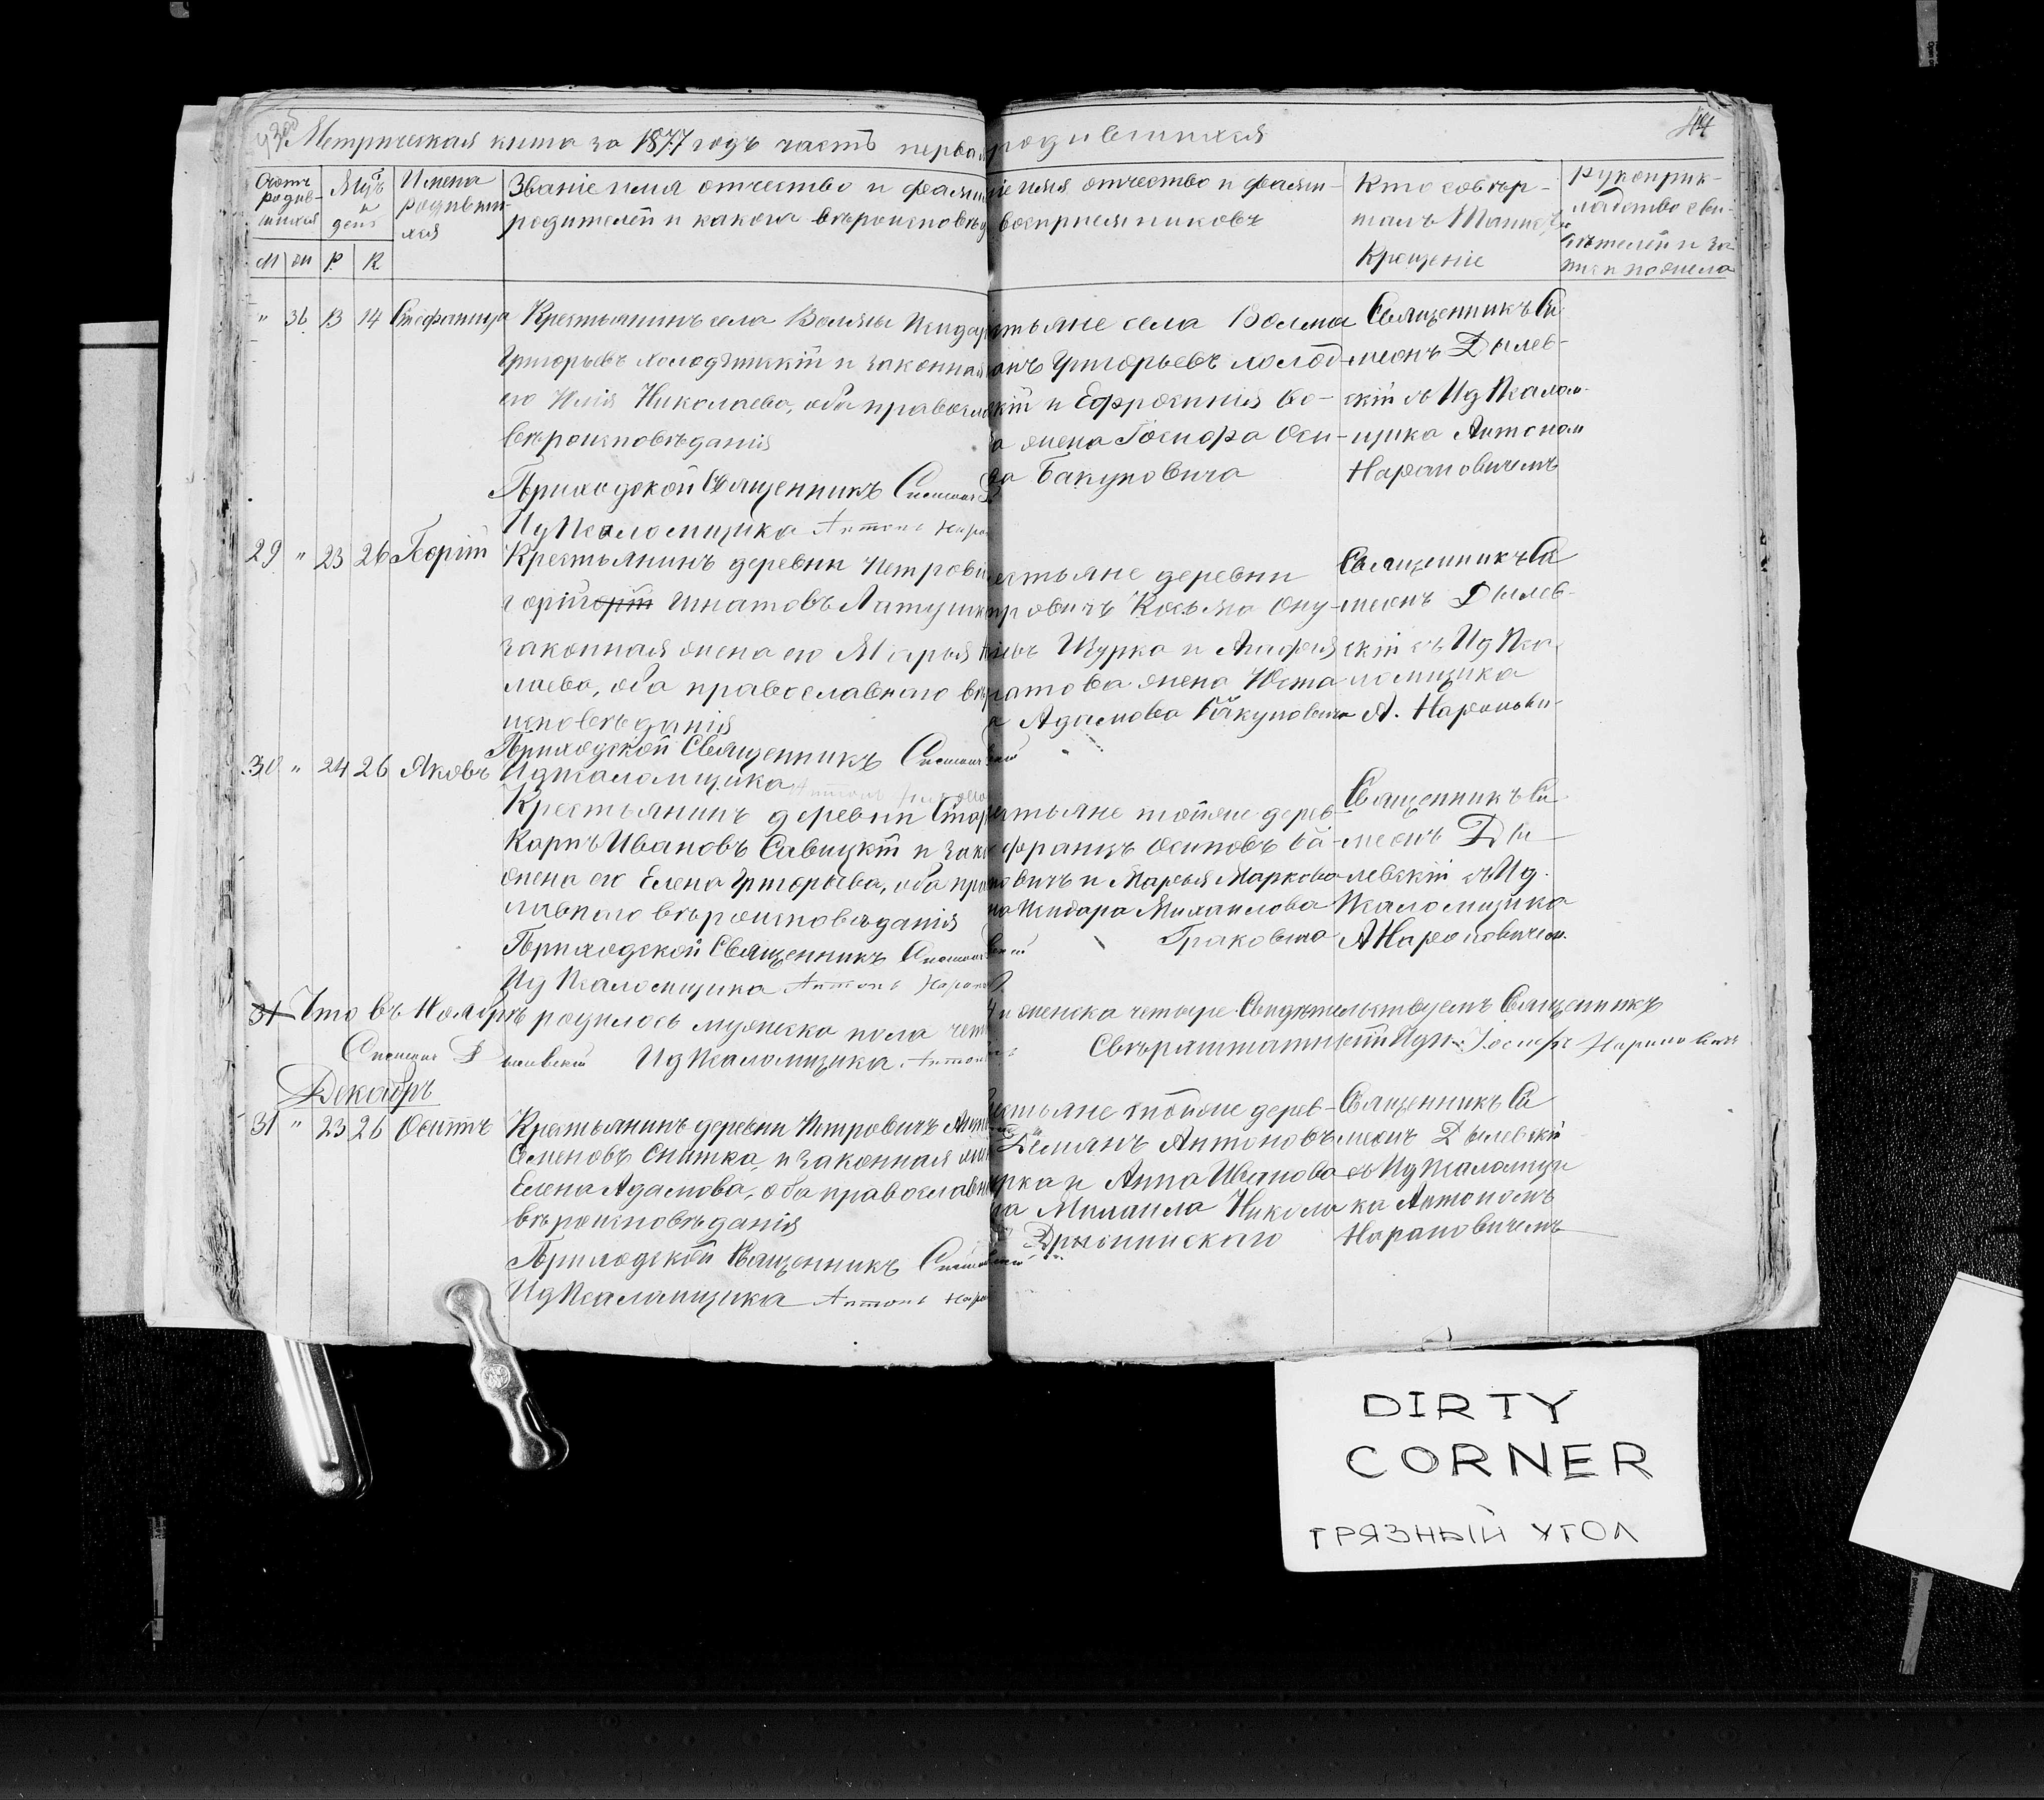 Метрическая книга за 1877 годъ часть первая родившихся
44
Счетъ родив-шихся
Мцъ и день
Имена родивши-хся
Званіе имя отчество и фамилі
родителей и какого вѣроисповѣд
іе имя отчество и фамил-
воспріемниковъ
Кто совер-
шалъ Таинст
Крещеніе
Рукоприк-
ладство сви-
дѣтелей
м ж Р К
" 36 13 14 Стефанида
Крестьянинъ села Волмы
Григорьевъ Холодзинскій и законная
его Юлія Николаева, оба правосла
вѣроисповѣданія
Приходской Священникъ Симеонъ
Ид Псаломщика Антонъ Наро
стьяне села Волмы
анъ Григорьевъ Холод-
кій и Ефросинія Во-
а жена Госпора Оси-
ва Бакуновича
Священникъ Си
меонъ Дылев-
скій съ Ид Псалом-
щика Антоном
Нарановичемъ
29 " 23 26 Георгій
Крестьянинъ деревни Петрови
Игнатовъ Латушк
законная жена его Марья
лаева, оба православнаго вѣ
исповѣданія
Приходской Священникъ Симеонъ
Ид Псаломщика
естьяне деревни
тровичъ Косьма Ону-
Шурка и
жена Юста
а Адамова Бакуновича
Священникъ Си
меонъ Дылев-
скій съ Ид Пса-
ломщика
А. Наранови-
30 " 24 26 Яковъ
Крестьянинъ деревни Стар
Карпъ Ивановъ Савицкій и зако
жена его Елена Григорьева, оба пра
лавнаго вѣроисповѣданія
Приходской Священникъ Симеонъ
Ид Псаломщика Антонъ Нарано
естьяне тойже дерев-
францъ Осиповъ Ба-
новичъ и Марья Маркова
на Исидора Михаилова
Граковича
Священникъ Си
меонъ Ды-
левскій съ Ид.
Псаломщика
А Нарановичем.
31 Что въ Ноябрѣ родилось мужеска пола чет
и женска четыре Свидѣтельствуемъ Священникъ
Симеонъ Дылевскій Ид Псаломщика Антонъ
Сверхштатный Идп. Іосифъ Нарановичъ
Декабрь
31 " 23 26 Осипъ
Крестьянинъ деревни Петровичъ
Семеновъ Снитка, и законная жен
Елена Адамова, оба православн
вѣроисповѣданія
Приходской Священникъ Симеонъ
Ид Псаломщика Антонъ Наро
естьяне тойже дерев-
Антоновъ
рка и Анна Иванова
на Михаила Никола
Священникъ Си
меонъ Дылевскій
съ Ид Псаломщи
ка Антономъ
Нарановичемъ
DIRTY
CORNER
ГРЯЗНЫЙ УГОЛ